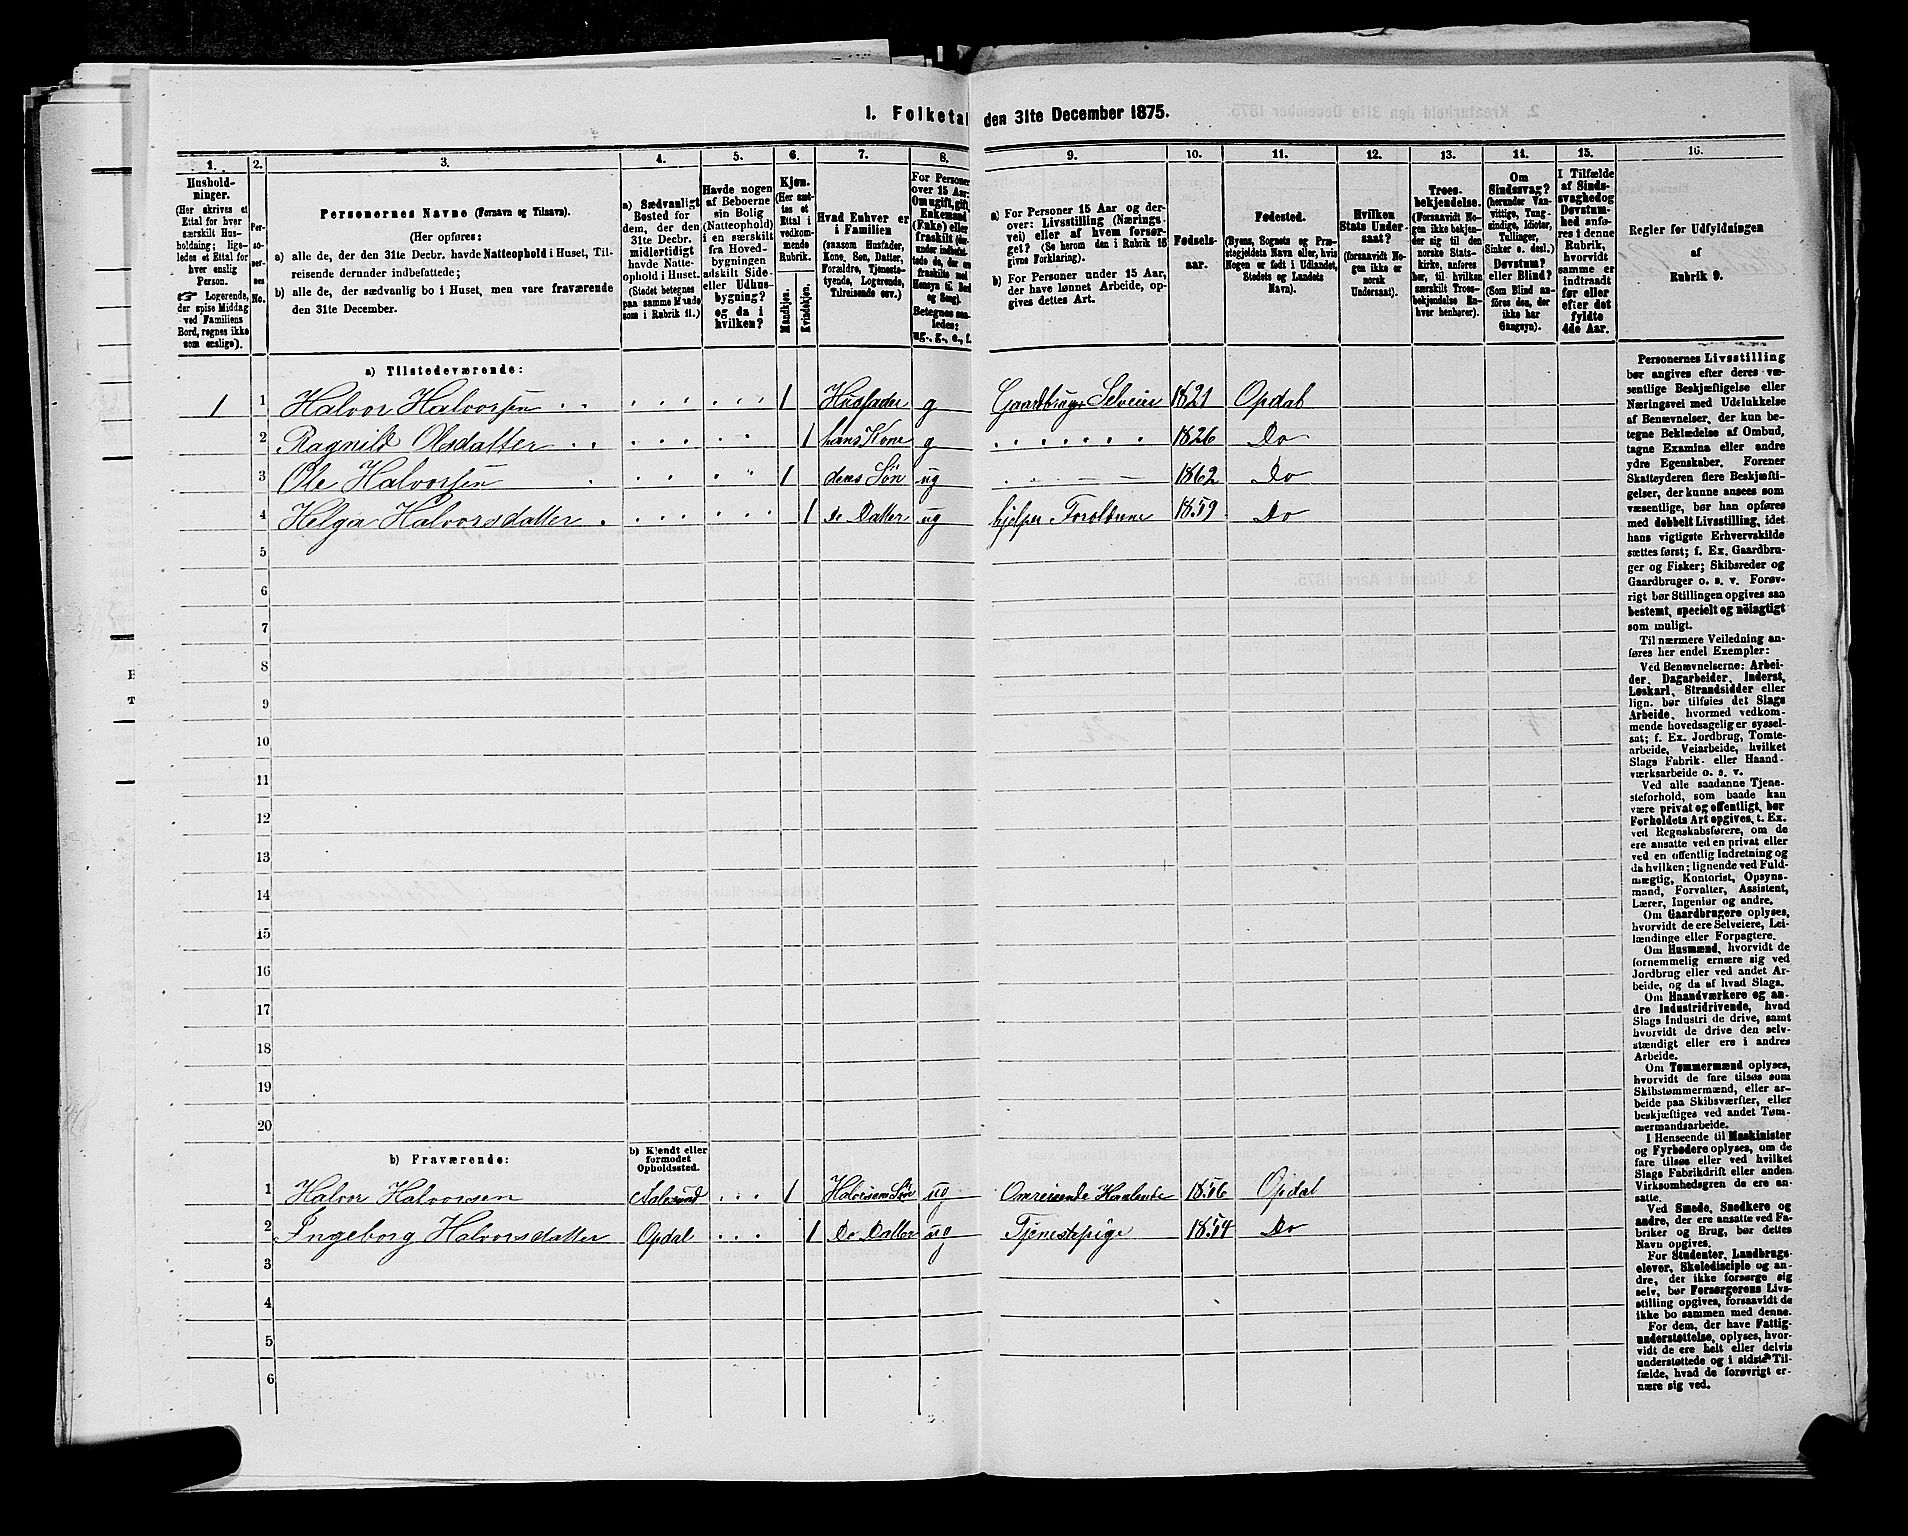 1. Folketal den 31te December 1875.
1. 2. 3. 4. 5. 6. 7. 8. 9. 10. 11. 12. 13. 14. 15. 16.
Hushold-
ninger.
(Her skrives et
Ettal for hver
særskilt Hus-
holdning; lige-
ledes et Ettal for
hver enslig
Person.
☞ Logerende,
der spise Middag
ved Familiens
Bord, regnes ikke
som enslige).
Per-
so-
ner-
nes
No.
Personernes Navne (Fornavn og Tilnavn).
(Her opføres:
a) alle de, der den 31te Decbr. havde Natteophold i Huset, Til-
reisende derunder indbefattede;
b) alle de, der sædvanlig bo i Huset, men vare fraværende
den 31te December.
a) Sædvanligt
Bosted for
dem, der den
31te Decbr.
midlertidigt
havde Natte-
ophold i Huset.
(Stedet betegnes
paa samme Maade
som i Rubrik 11.)
Havde nogen
af Beboerne
sin Bolig
(Natteophold)
i en særskilt
fra Hoved-
bygningen
adskilt Side-
eller Udhus-
bygning?
og da i
hvilken?
Kjøn.
(Her sæt-
tes et
Ettal i
vedkom-
mende
Rubrik.
Mandkjøn.
Kvindekjøn.
Hvad Enhver er
i Familien
(saasom Husfader,
Kone, Søn, Datter,
Forældre, Tjeneste-
tyende, Logerende,
Tilreisende osv.)
For Personer
over 15 Aar:
Om ugift, gift,
Enkemand
(Enke) eller
fraskilt (der-
under indbefat-
tede de, der ere
fraskilte med
Hensyn til Bord
og Seng).
Betegnes saa-
ledes:
ug., g., e., f.
a) For Personer 15 Aar og der-
over: Livsstilling (Nærings-
vei) eller af hvem forsør-
get? (Se herom den i Rubrik 16
givne Forklaring).
b) For Personer under 15 Aar,
der have lønnet Arbeide, op-
gives dettes Art.
Fødsels-
aar.
Fødested.
(Byens, Sognets og Præ-
stegjeldets Navn, eller, hvis
Nogen er født i Udlandet,
Stedets og Landets
Navn).
Hvilken
Stats Under-
saat?
(forsaavidt No-
gen ikke er
norsk
Undersaat).
Troes-
bekjendelse.
(Forsaavidt No-
gen ikke bekjen-
der sig til den
norske Stats-
kirke, anføres
her, til hvilken
særskilt Troes-
bekjendelse En-
hver henhører).
Om
Sindssvag?
(herunder Van-
vittige, Tung-
sindige, Idioter,
Tullinger,
Sinker o. desl.)
Døvstum?
eller Blind?
(Som Blind an-
føres den, der
ikke har
Gangsyn).
I Tilfælde
af Sinds-
svaghed og
Døvstum-
hed anfø-
res i denne
Rubrik,
hvorvidt
samme er
indtraadt
før eller
efter det
fyldte
4de Aar.
Regler for Udfyldningen
af
Rubrik 9.
a) Tilstedeværende:
1 1 Halvor Halvorsen 1 Husfader g Gaardbruger Selveier 1821 Opdal
2 Ragnild Olsdatter 1 hans Kone g 1826 Do
3 Ole Halvorsen 1 dens Søn ug 1862 Do
4 Helga Halvorsdatter 1 De Datter ug hjelper Foreldrene 1859 Do
5
6
7
8
9
10
11
12
13
14
15
16
17
18
19
20
b) Fraværende:
b) Kjendt eller
formodet
Opholdssted.
1 Halvor Halvorsen Aalesund 1 Søn ug Omreisende 1856 Opdal
2 Ingeborg Halvorsdatter Opdal 1 De Datter ug Tjenestepige 1854 Do
3
4
5
6
Personernes Livsstilling
bør angives efter deres væ-
sentlige Beskjæftigelse eller
Næringsvei med Udelukkelse
af Benævnelser, der kun be-
tegne Beklædelse af Ombud,
tagne Examina eller andre
ydre Egenskaber. Forener
Skatteyderen flere Beskjæfti-
gelser, der kunne ansees som
væsentlige, bør han opføres
med dobbelt Livsstilling, idet
hans vigtigste Erhvervskilde
sættes først; f. Ex. Gaardbru-
ger og Fisker; Skibsreder og
Gaardbruger o. s. v. Forøv-
rigt bør Stillingen opgives saa
bestemt, specielt og nøiagtigt
som muligt.
Til nærmere Veiledning an-
føres her endel Exempler:
Ved Benævnelserne: Arbei-
der, Dagarbeider, Inderst,
Løskarl, Strandsidder eller
lign. bør tilføies det Slags
Arbeide, hvormed vedkom-
mende hovedsagelig er syssel-
sat; f. Ex. Jordbrug, Tomte-
arbeide, Veiarbeide, hvilket
Slags Fabrik- eller Haand-
værksarbeide o. s. v.
Ved alle saadanne Tjene-
steforhold, som baade kan
være privat og offentligt, bør
Forholdets Art opgives, t. Ex.
ved Regnskabsførere, om de
ere ansatte ved en privat eller
ved en offentlig Indretning og
da hvilken; lignende ved Fuld-
mægtig, Kontorist, Opsyns-
mand, Forvalter, Assistent,
Lærer, Ingeniør og andre.
Om Gaardbrugere oplyses,
hvorvidt de ere Selveiere, Lei-
lændinge eller Forpagtere.
Om Husmænd, hvorvidt de
fornemmelig ernære sig ved
Jordbrug eller ved andet Ar-
beide, og da af hvad Slags.
Om Haandværkere og an-
dre Industridrivende, hvad
Slags Industri de drive, samt
hvorvidt de drive den selv-
stændigt eller ere i andres
Arbeide.
Om Tømmermænd oplyses,
hvorvidt de fare tilsøs som
Skibstømmermænd, eller ar-
beide paa Skibsværfter, eller
beskjæftiges ved andet Tøm-
mermandsarbeide.
I Henseende til Maskinister
og Fyrbødere oplyses, om de
fare tilsøs eller ved hvilket
Slags Fabrikdrift eller anden
Virksomhedsgren de ere an-
satte.
Ved Smede, Snedkere og
andre, der ere ansatte ved Fa-
briker og Brug, bør dettes
Navn opgives.
For Studenter, Landbrugs-
elever, Skoledisciple og an-
dre, der ikke forsørge sig
selv, bør Forsørgerens Livs-
stilling opgives, forsaavidt de
ikke bo sammen med denne.
For dem, der have Fattig-
understøttelse, oplyses, hvor-
vidt de ere helt eller delvis
understøttede og i sidste Til-
fælde, hvad de forøvrigt er-
nære sig ved.